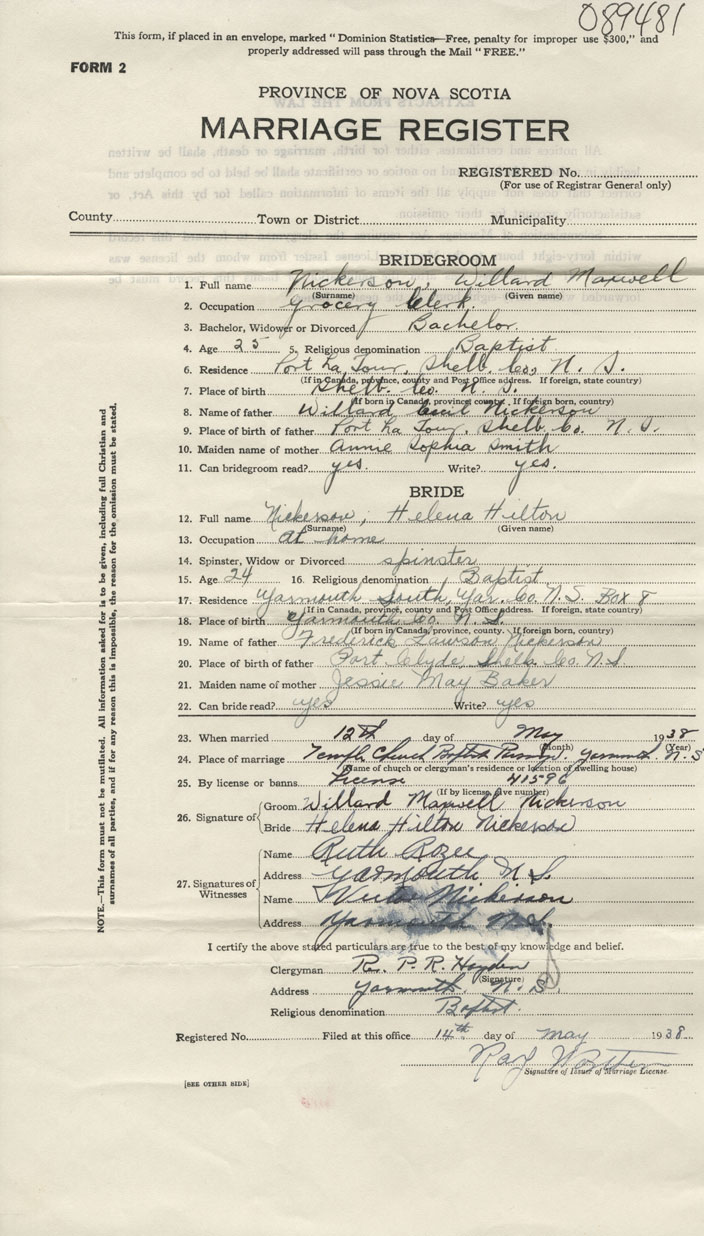 089481
This form, if placed in an envelope, marked "Dominion Statistics—Free, penalty for improper use $300," and
properly addressed will pass through the Mail "FREE."
FORM 2
PROVINCE OF NOVA SCOTIA
MARRIAGE REGISTER
REGISTERED No.
(For use of Registrar General only)
County Town or District Municipality
BRIDEGROOM
1. Full name Nickerson, Willard Maxwell
(Surname) (Given name)
2. Occupation Grocery Clerk.
3. Bachelor, Widower or Divorced Bachelor.
4. Age 25 5. Religious denomination Baptist
6. Residence Port La Tour, Shelb. Co., N. S.
(If in Canada, province, county and Post Office address. If foreign, state country)
7. Place of birth Shelb. Co. N. S.
(If born in Canada, province, county. If foreign born, country)
8. Name of father Willard Cecil Nickerson
9. Place of birth of father Port La Tour, Shelb. Co. N. S.
10. Maiden name of mother Annie Sophia Smith
11. Can bridegroom read? yes. Write? yes.
BRIDE
12. Full name Nickerson, Helena Hilton
(Surname) (Given name)
13. Occupation at home
14. Spinster, Widow or Divorced spinster
15. Age 24 16. Religious denomination Baptist
17. Residence Yarmouth South, Yar. Co. N.S. Box 8
(If in Canada, province, county and Post Office address. If foreign, state country)
18. Place of birth Yarmouth Co. N. S.
(If born in Canada, province, county. If foreign born, country)
19. Name of father Frederick Lawson Nickerson
20. Place of birth of father Port Clyde Shelb. Co. N.S.
21. Maiden name of mother Jessie May Baker
22. Can bride read? yes Write? yes
23. When married 12th day of May 1938
(Month) (Year)
24. Place of marriage Temple Church Baptist Yarmouth N. S.
(Name of church or clergyman's residence or location of dwelling house)
25. By license or banns License 41596
(If by license, give number)
26. Signature of
Groom Willard Maxwell Nickerson
Bride Helena Hilton Nickerson
27. Signatures of Witnesses
Name Ruth
Address Yarmouth N S
Name Nickerson
Address Yarmouth N.S.
I certify the above stated particulars are true to the best of my knowledge and belief.
Clergyman P. R. Hayden
(Signature)
Address Yarmouth, N. S.
Religious denomination Baptist.
Registered No. Filed at this office 14th day of May 1938
Ray
Signature of Issuer of Marriage License.
[SEE OTHER SIDE]
NOTE.—This form must not be mutilated. All information asked for is to be given, including full Christian and
surnames of all parties, and if for any reason this is impossible, the reason for the omission must be stated.